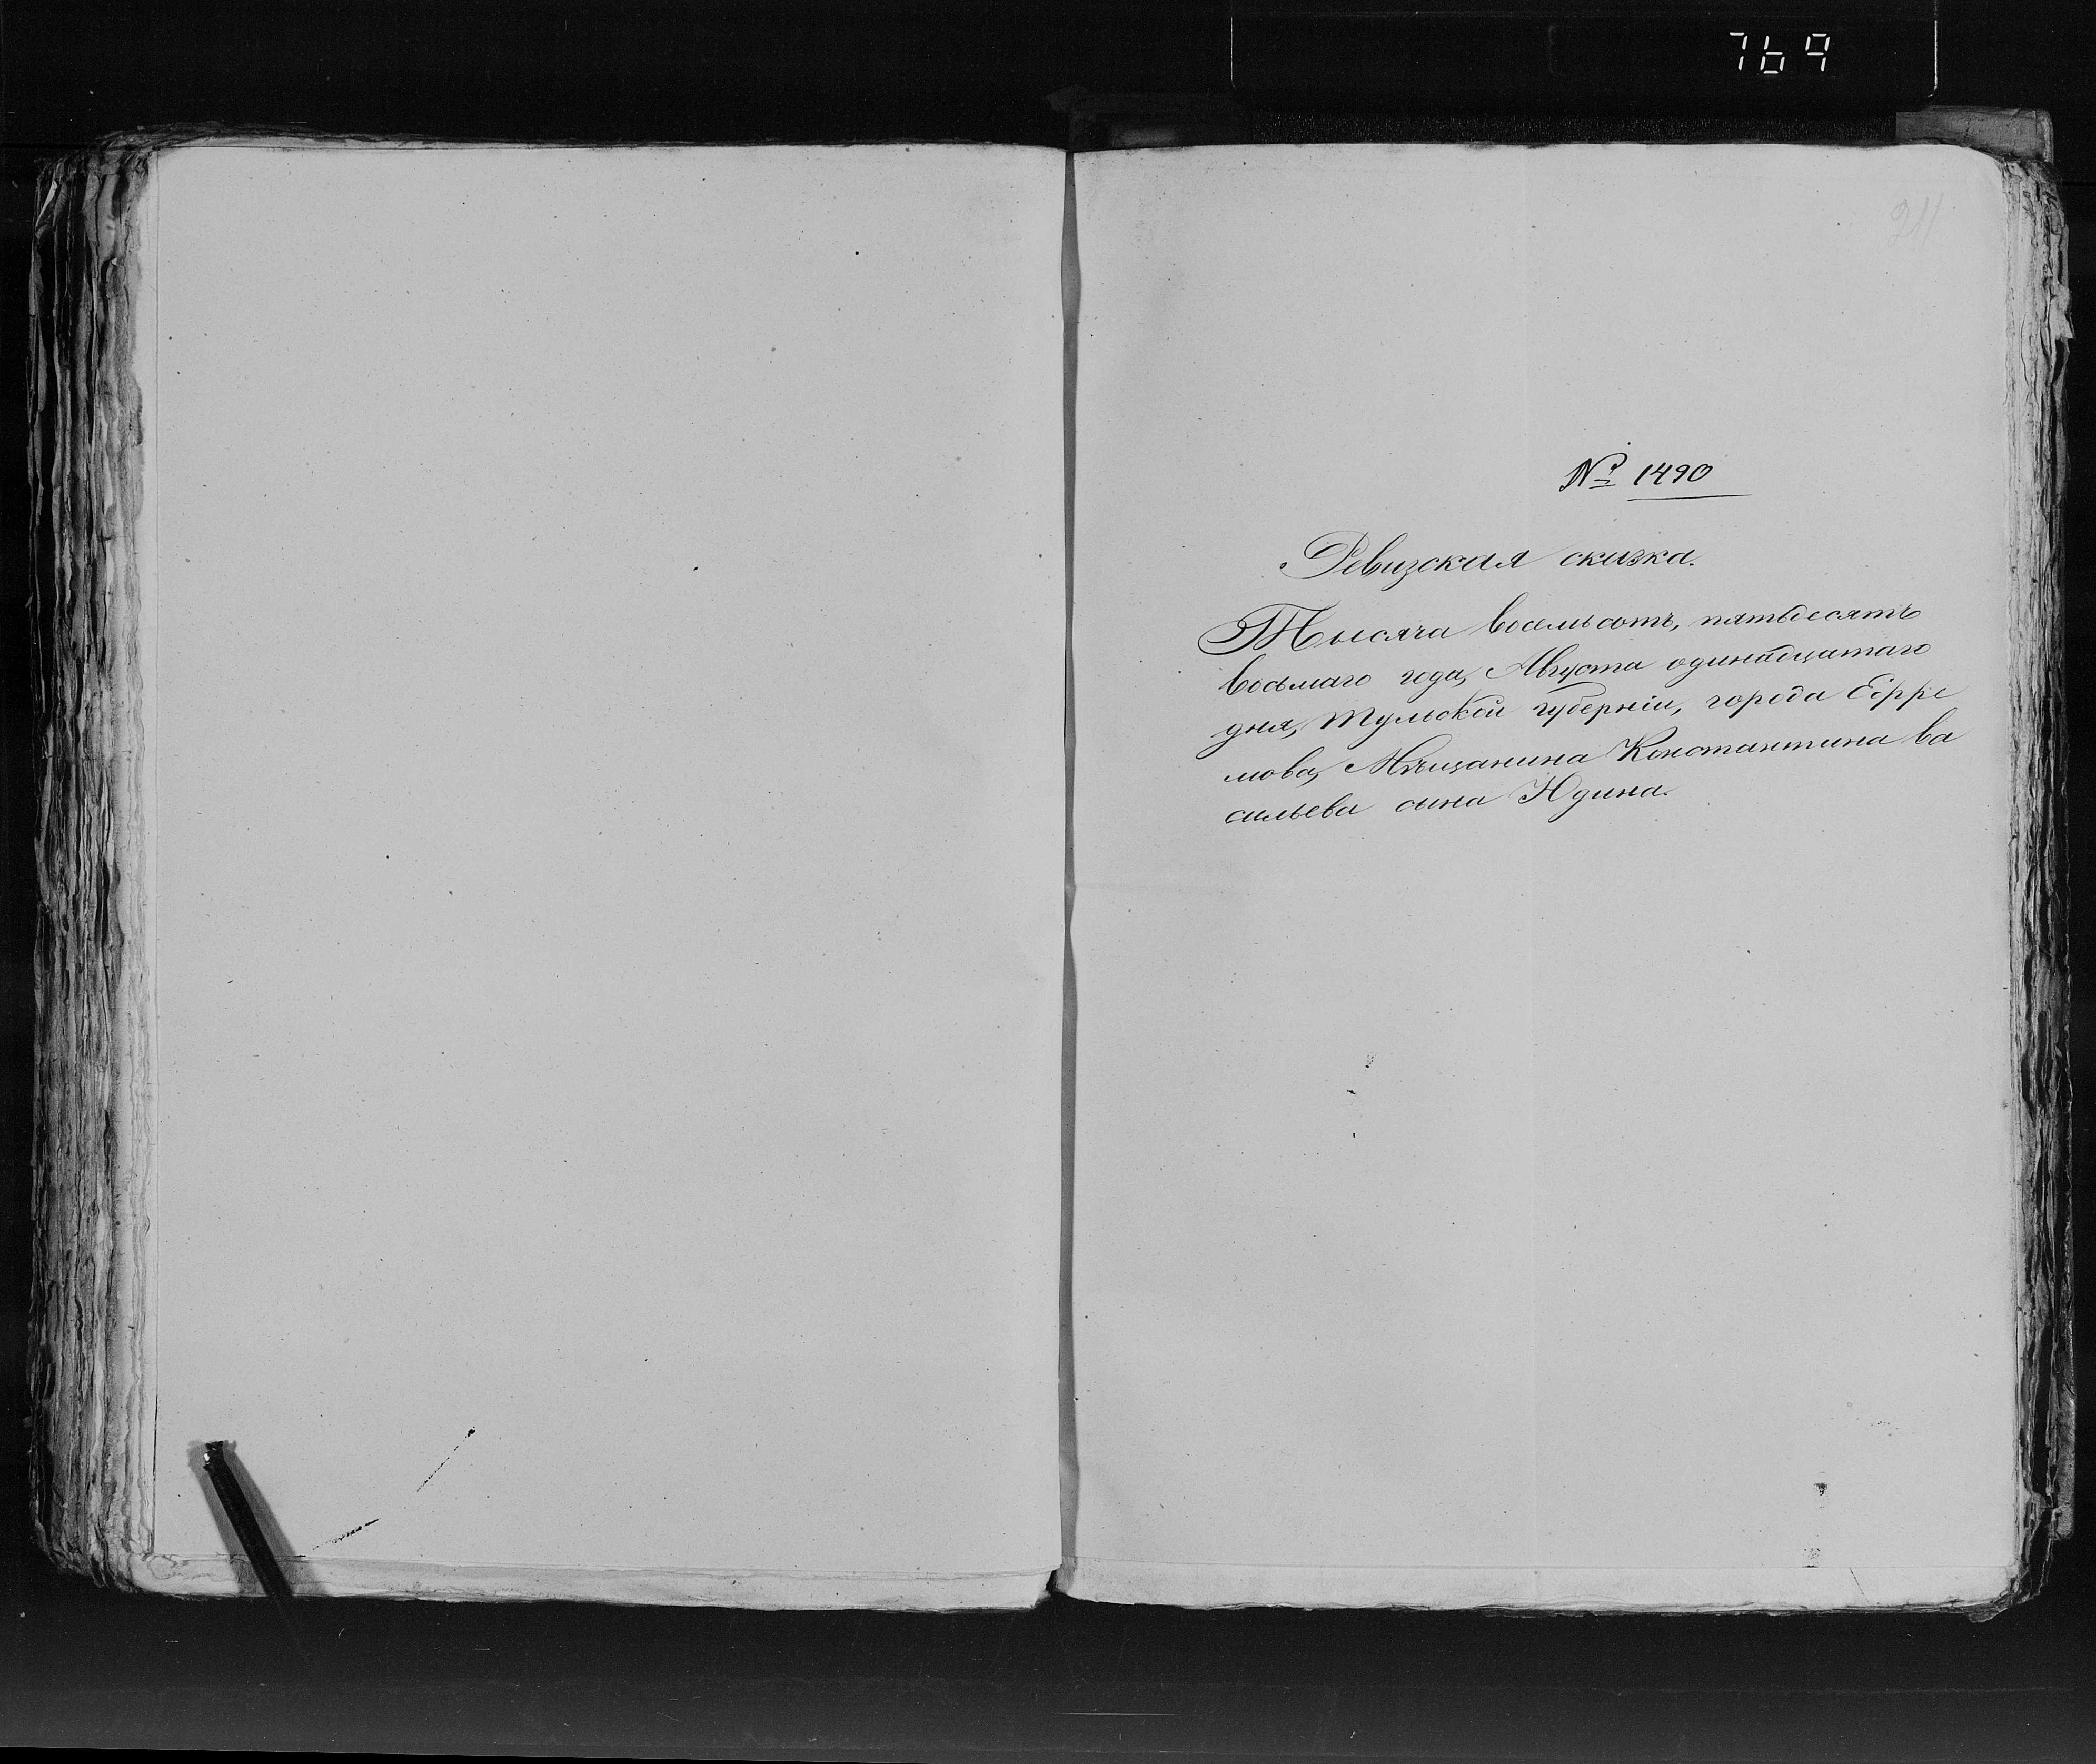 769
211
№ 1490
Ревизская сказка.
Тысяча восемьсотъ, пятьдесятъ
восьмаго года, Августа одинадцатаго
дня, Тульской губерніи, города Ефре
мова, Мѣщанина Константина Ва
сильева сына Юдина.